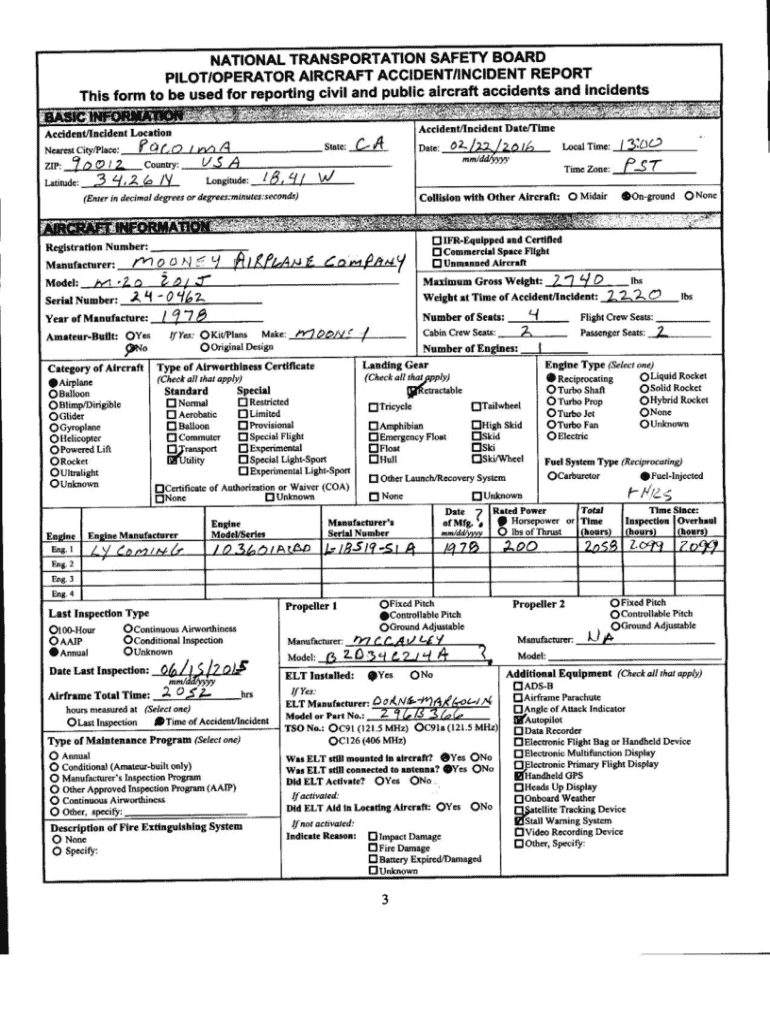 NATIONAL TRANSPORTATION SAFETY BOARD
PILOT/OPERATOR AIRCRAFT ACCIDENT/INCIDENT REPORT
This form to be used for reporting civil and public aircraft accidents and incidents
BASIC INFORMATION
Accident/Incident Location
Nearest City/Place: PACOIMA State: CA
ZIP: 90012 Country: USA
Latitude: 34.261N Longitude: 18.41 W
(Enter in decimal degrees or degrees:minutes:seconds)
Accident/Incident Date/Time
Date: 02/22/2016 Local Time: 13:00
mm/dd/yyyy
Time Zone: PST
Collision with Other Aircraft: Midair On-ground None
AIRCRAFT INFORMATION
Registration Number:
Manufacturer: MOONEY AIRPLANE COMPANY
Model: M-20 201J
Serial Number: 24-0462
Year of Manufacture: 1978
Amateur-Built: Yes If Yes: Kit/Plans Make: MOONEY
No Original Design
IFR-Equipped and Certified
Commercial Space Flight
Unmanned Aircraft
Maximum Gross Weight: 2740 lbs
Weight at Time of Accident/Incident: 2220 lbs
Number of Seats: 4 Flight Crew Seats:
Cabin Crew Seats: 2 Passenger Seats: 2
Number of Engines: 1
Category of Aircraft
Airplane
Balloon
Blimp/Dirigible
Glider
Gyroplane
Helicopter
Powered Lift
Rocket
Ultralight
Unknown
Type of Airworthiness Certificate
(Check all that apply)
Standard Special
Normal Restricted
Aerobatic Limited
Balloon Provisional
Commuter Special Flight
Transport Experimental
Utility Special Light-Sport
Experimental Light-Sport
Certificate of Authorization or Waiver (COA)
None Unknown
Landing Gear
(Check all that apply)
Retractable
Tricycle Tailwheel
Amphibian High Skid
Emergency Float Skid
Float Ski
Hull Ski/Wheel
Other Launch/Recovery System
None Unknown
Engine Type (Select one)
Reciprocating Liquid Rocket
Turbo Shaft Solid Rocket
Turbo Prop Hybrid Rocket
Turbo Jet None
Turbo Fan Unknown
Electric
Fuel System Type (Reciprocating)
Carburetor Fuel-Injected
Engine Engine Manufacturer Engine Model/Series Manufacturer's Serial Number Date of Mfg. mm/dd/yyyy ? Rated Power Horsepower or lbs of Thrust Total Time (hours) Time Since: Inspection (hours) Overhaul (hours)
Eng. 1 LYCOMING L-18519-51A 1978 200 2058 2099 2099
Eng. 2
Eng. 3
Eng. 4
Last Inspection Type
100-Hour Continuous Airworthiness
AAIP Conditional Inspection
Annual Unknown
Date Last Inspection: 06/15/2015
mm/dd/yyyy
Airframe Total Time: 2052 hrs
hours measured at (Select one)
Last Inspection Time of Accident/Incident
Type of Maintenance Program (Select one)
Annual
Conditional (Amateur-built only)
Manufacturer's Inspection Program
Other Approved Inspection Program (AAIP)
Continuous Airworthiness
Other, specify:
Description of Fire Extinguishing System
None
Specify:
Propeller 1 Fixed Pitch
Controllable Pitch
Ground Adjustable
Manufacturer: MCCAULEY
Model: B2D34C214A ?
Propeller 2 Fixed Pitch
Controllable Pitch
Ground Adjustable
Manufacturer: NA
Model:
ELT Installed: Yes No
If Yes:
ELT Manufacturer: DORNE-MARGOLIN
Model or Part No.:
TSO No.: C91 (121.5 MHz) C91a (121.5 MHz)
C126 (406 MHz)
Was ELT still mounted in aircraft? Yes No
Was ELT still connected to antenna? Yes No
Did ELT Activate? Yes No
If activated:
Did ELT Aid in Locating Aircraft: Yes No
If not activated:
Indicate Reason: Impact Damage
Fire Damage
Battery Expired/Damaged
Unknown
Additional Equipment (Check all that apply)
ADS-B
Airframe Parachute
Angle of Attack Indicator
Autopilot
Data Recorder
Electronic Flight Bag or Handheld Device
Electronic Multifunction Display
Electronic Primary Flight Display
Handheld GPS
Heads Up Display
Onboard Weather
Satellite Tracking Device
Stall Warning System
Video Recording Device
Other, Specify:
3